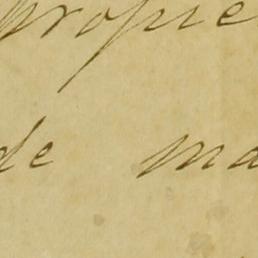 propie
de ma